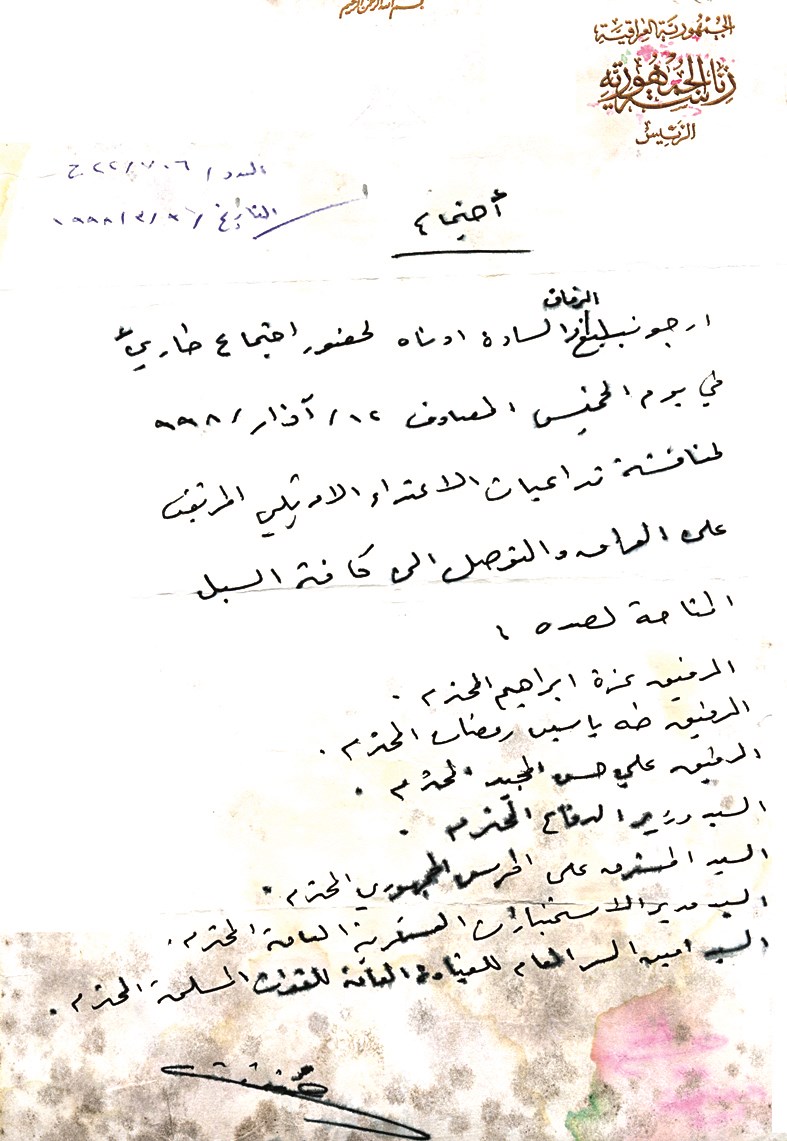 بسم الله الرحمن الرحيم
الجمهورية العراقية
رئاسة الجمهورية
الرئيس
العدد / ٢٢/٧٠٦ ح
التاريخ / ٦ /٣/ ١٩٩٨
أجتماع
الرفاق
ارجو تبليغ السادة ادناه لحضور اجتماع طاريء
في يوم الخميس المصادف ١٢/ آذار / ٩٩٨
لمناقشة تداعيات الاعتداء الامريكي المرتقب
على العراق والتوصل الى كافة السبل
المتاحة لصده :
الرفيق عزة ابراهيم المحترم .
الرفيق طه ياسين رمضان المحترم .
الرفيق علي حسن المجيد المحترم .
السيد وزير الدفاع المحترم .
السيد المشرف على الحرس الجمهوري المحترم .
السيد مدير الاستخبارات العسكرية العامة المحترم .
السيد امين السر العام للقيادة العامة للقوات المسلحة المحترم .